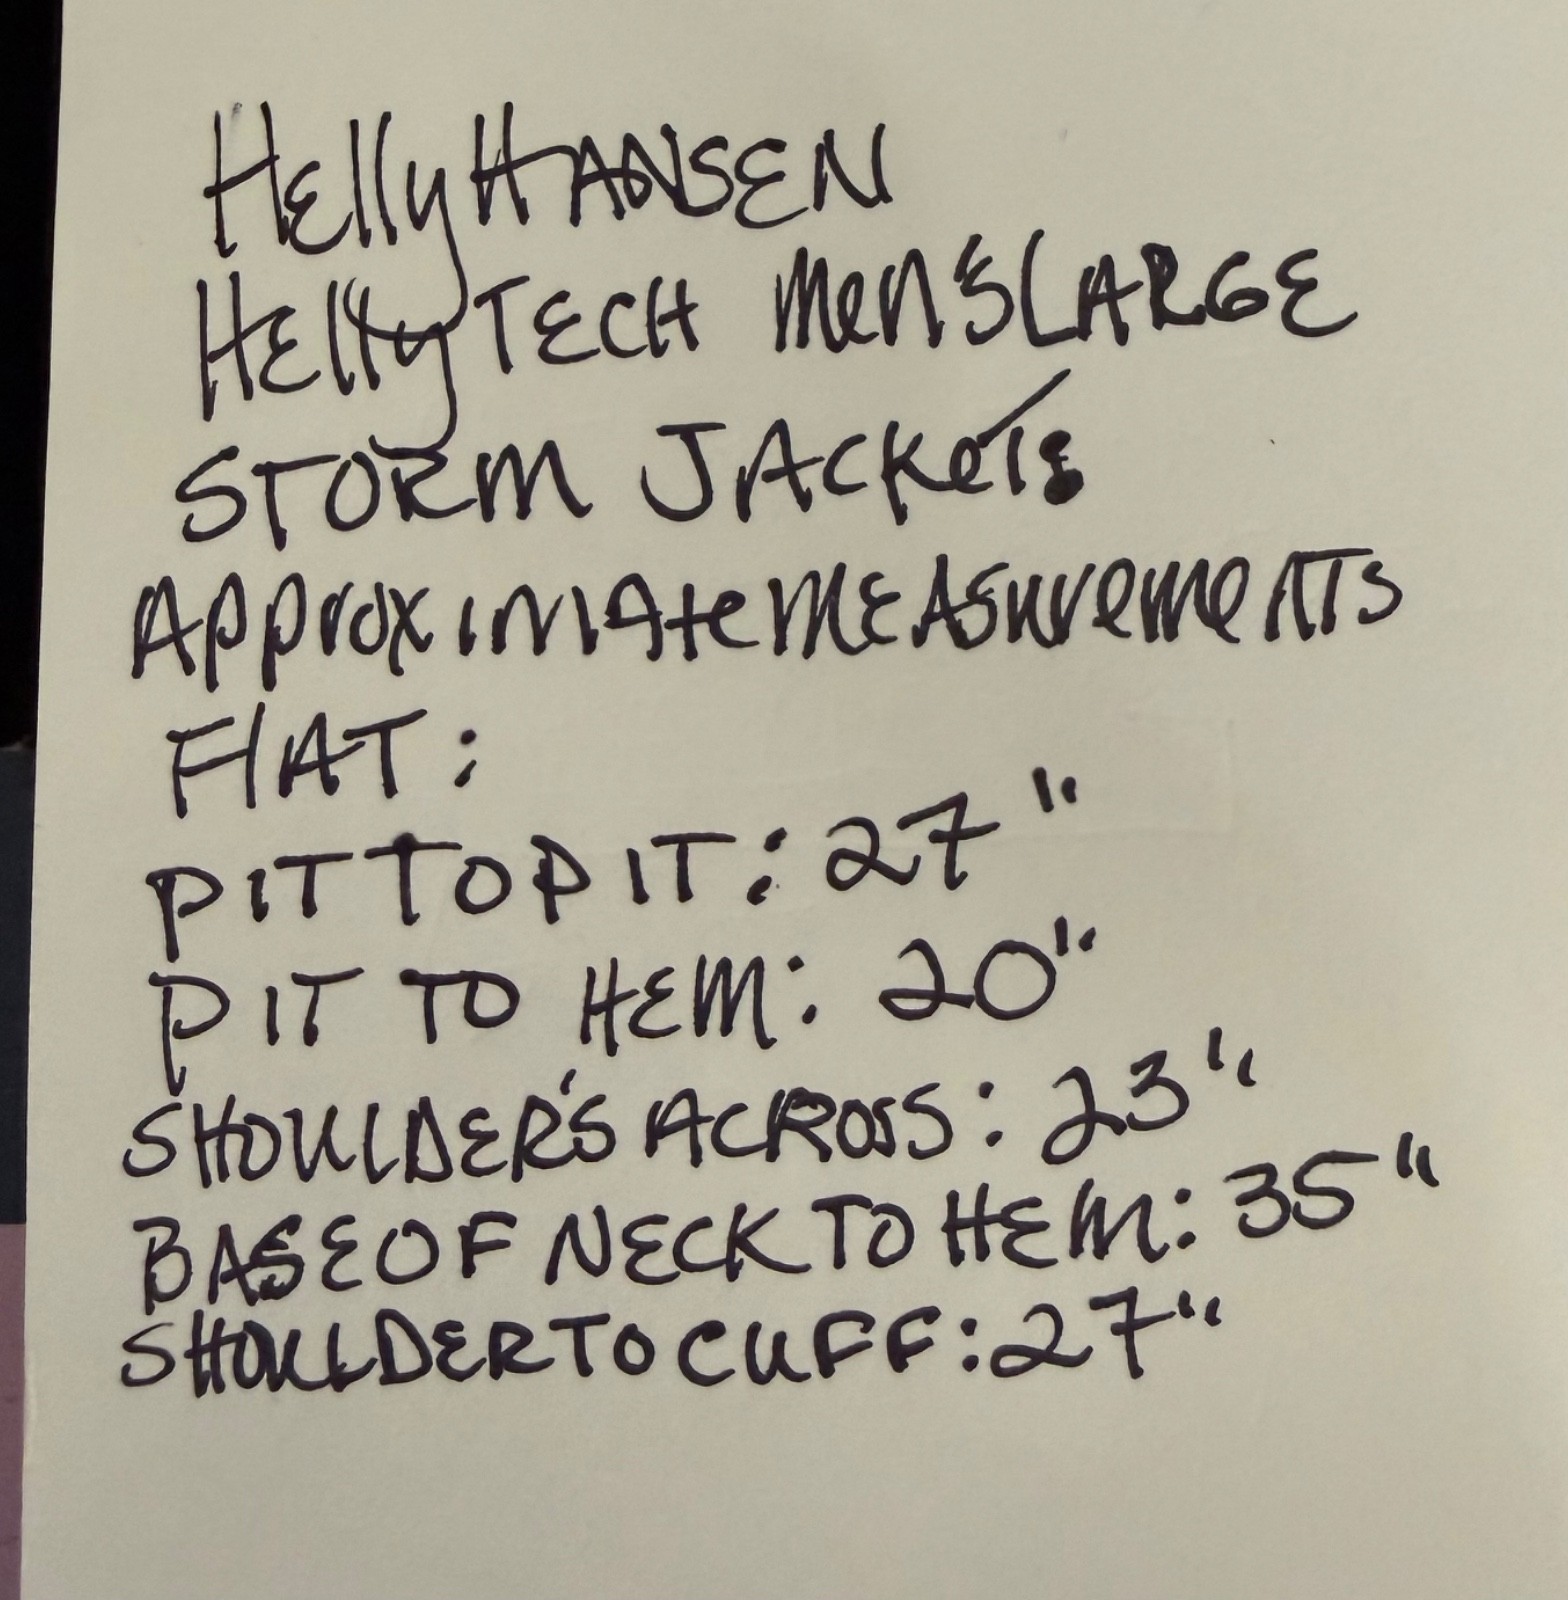 Helly HANSEN
Helly TECH Men'S LARGE
STORM JACKeTs
Approximate MEASurements
FlAT:
PIT TO PIT: 27"
PIT TO HEM: 20"
SHOULDER'S ACROSS: 23"
BASE OF NECK TO HEM: 35"
SHOULDER TO CUFF: 27"